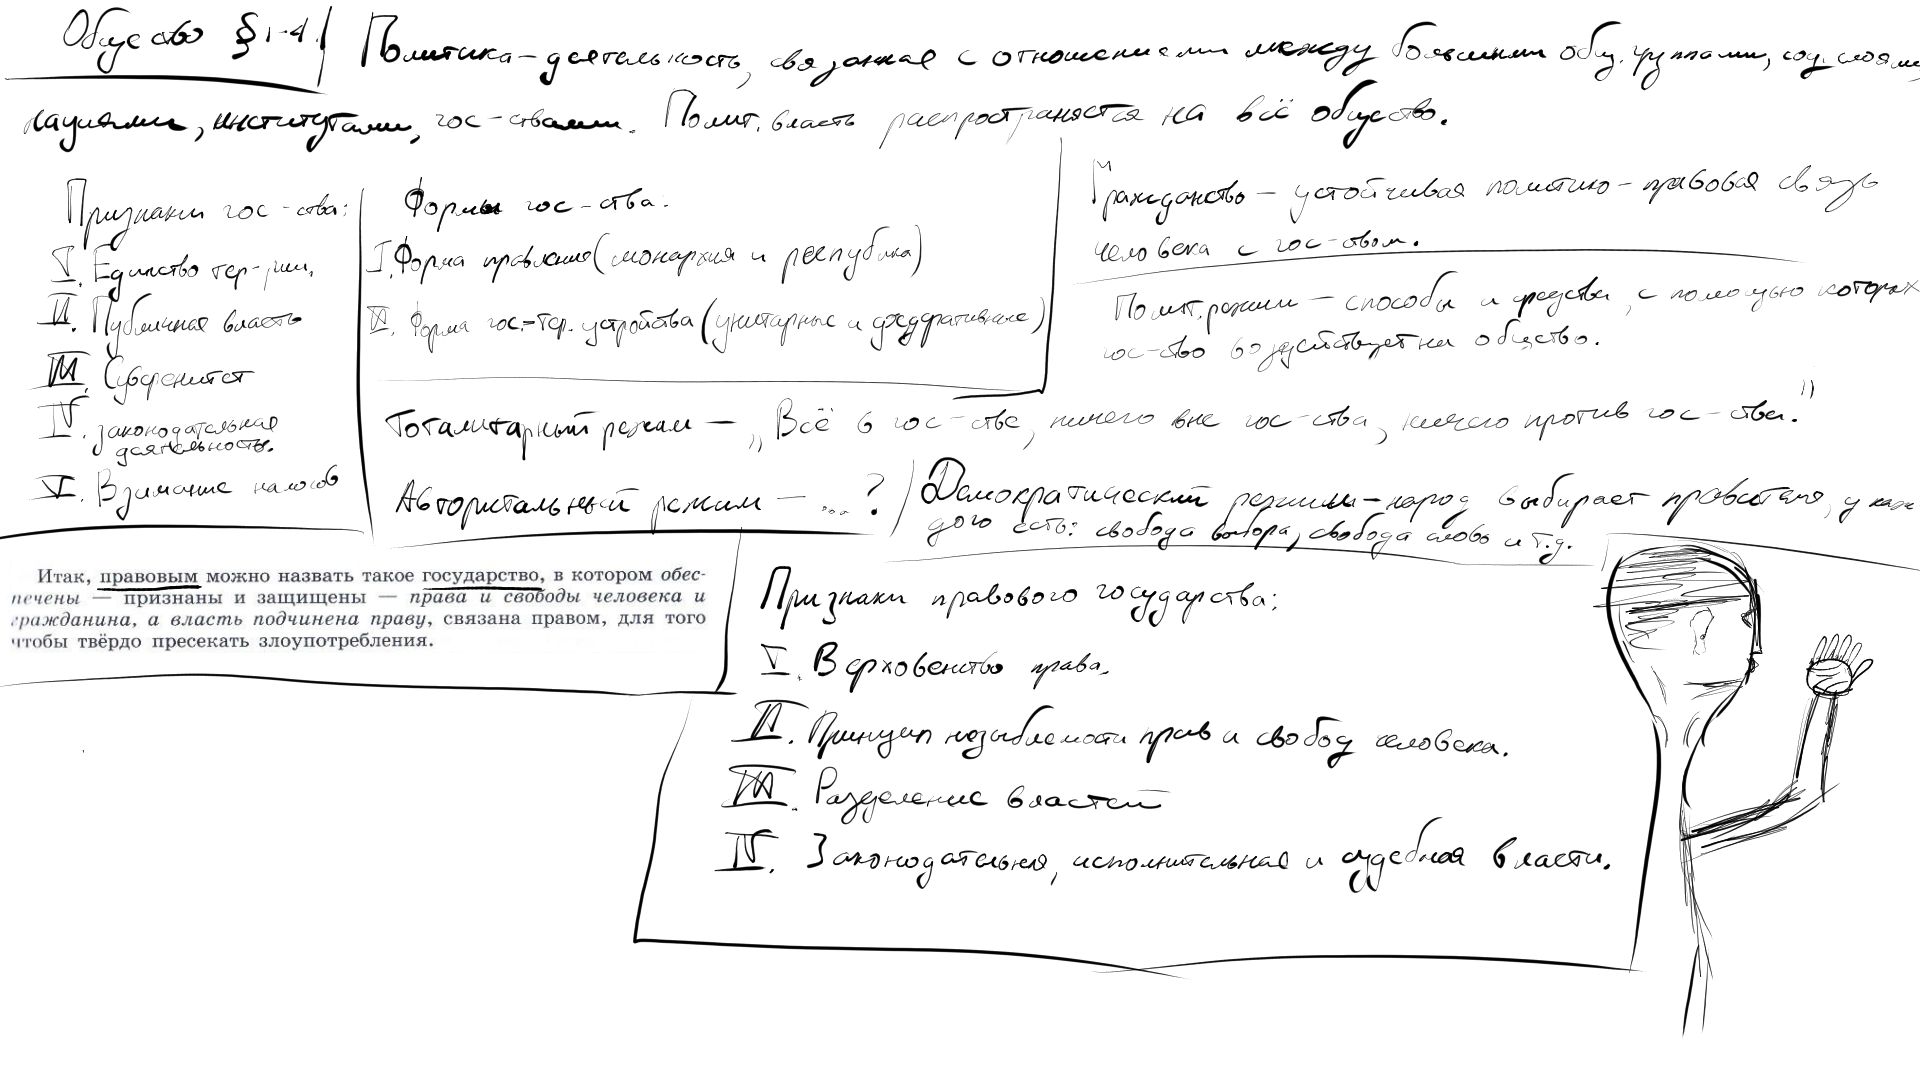 Общество § 1-4.
Политика - деятельность, связанная с отношениями между большими общ. группами, соц. слоями,
нациями, институтами, гос-ствами. Полит. власть распространяется на всё общество.
Признаки гос-ства:
I. Единство тер-рии.
II. Публичная власть
III. Суверенитет
IV. законодательная
деятельность.
V. Взимание налогов
Формы гос-ства:
I. Форма правления (монархия и республика)
II. Форма гос.-тер. устройства (унитарные и федеративные)
Гражданство - устойчивая политико-правовая связь
человека с гос-ством.
Полит. режим - способы и средства, с помощью которых
гос-ство воздействует на общество.
Тоталитарный режим - „Всё в гос-стве, ничего вне гос-ства, ничего против гос-ства."
Авторитальный режим - ...?
Демократический режим - народ выбирает правителя, у каж
дого есть: свобода выбора, свобода слова и т.д.
Итак, правовым можно назвать такое государство, в котором обес-
печены — признаны и защищены — права и свободы человека и
гражданина, а власть подчинена праву, связана правом, для того
чтобы твёрдо пресекать злоупотребления.
Признаки правового государства:
I. Верховенство права.
II. Принцип незыблемости прав и свобод человека.
III. Разделение властей
IV. Законодательная, исполнительная и судебная власти.